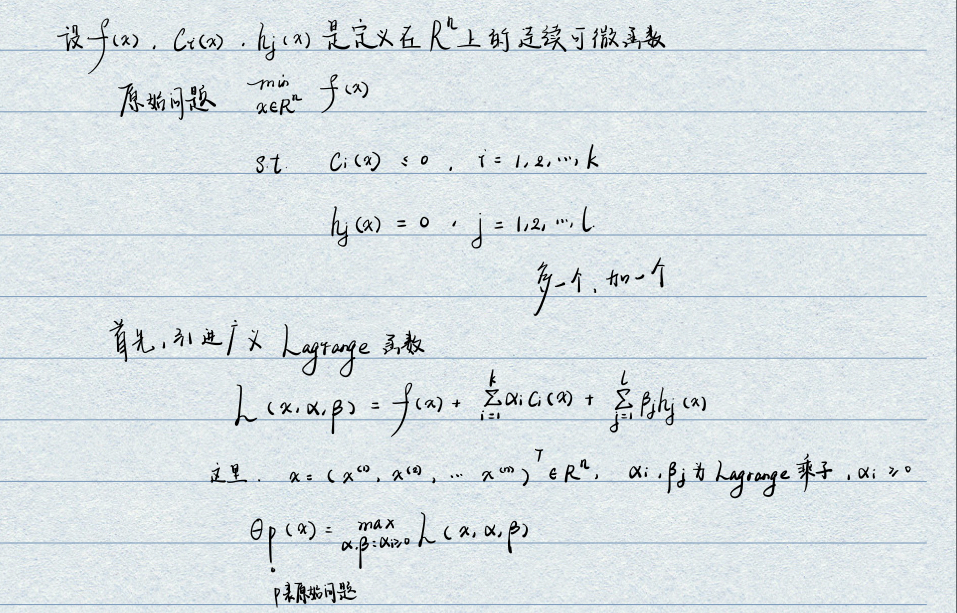 设 f(x), Ci(x), hj(x) 是定义在 Rⁿ 上的连续可微函数
原始问题 min x∈Rⁿ f(x)
s.t. Ci(x) ≤ 0, i = 1,2,…,k
hj(x) = 0, j = 1,2,…,l.
多一个,加一个
首先,引进广义 Lagrange 函数
L(x,α,β) = f(x) + Σ_{i=1}^{k} αi Ci(x) + Σ_{j=1}^{l} βj hj(x)
这里. x = (x⁽¹⁾, x⁽²⁾, … x⁽ⁿ⁾)ᵀ ∈ Rⁿ, αi, βj 为 Lagrange 乘子, αi ≥ 0
θp(x) = max α,β:αi≥0 L(x,α,β)
P表原始问题